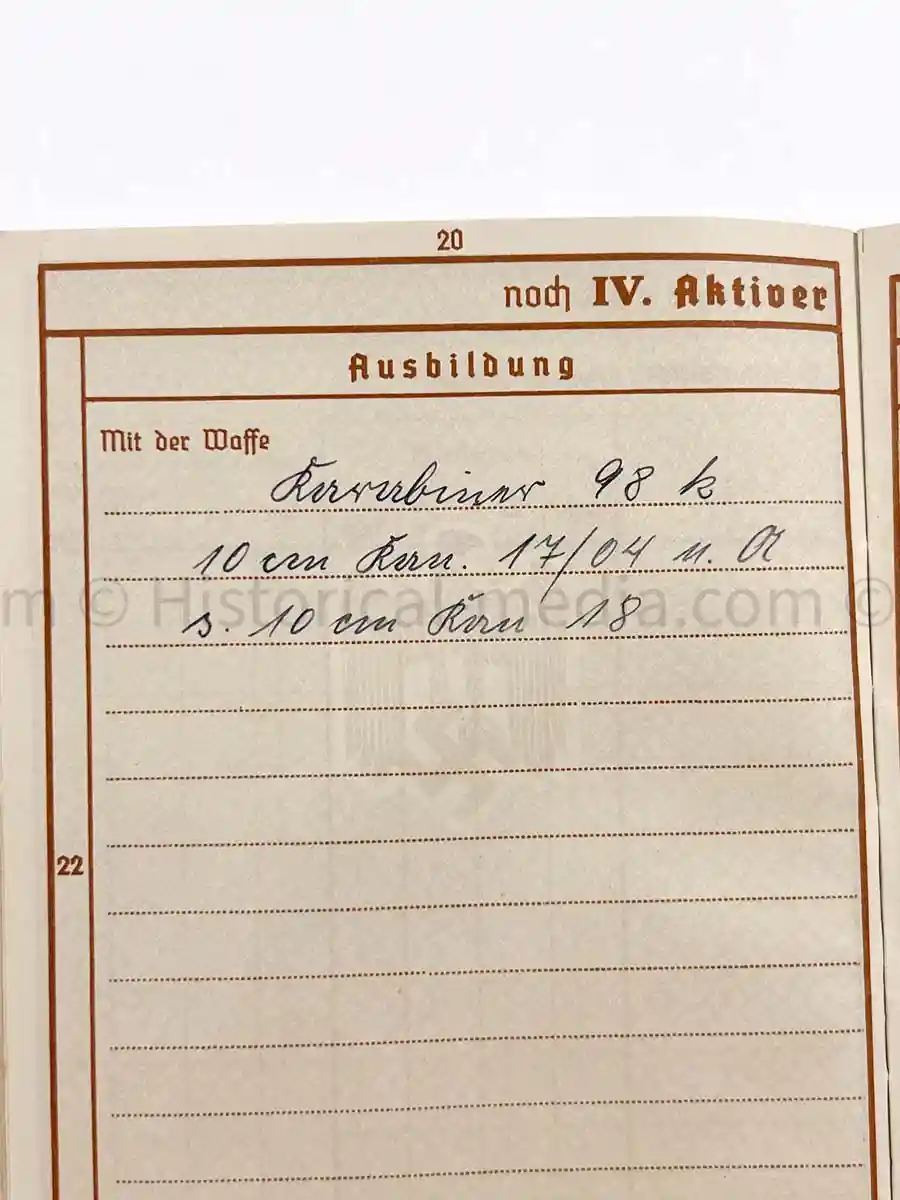 20
noch IV. Aktiver
Ausbildung
Mit der Waffe
Karabiner 98 k
10 cm Kan. 17/04 n. A
m © Historical-media.com ©
s. 10 cm Kan 18
22